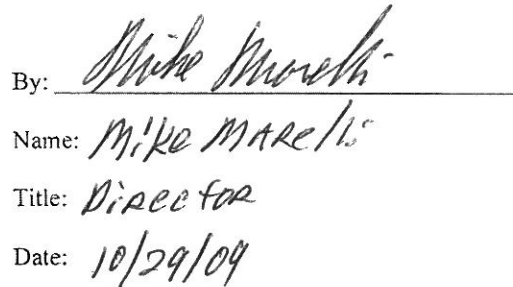 By: Mike Marelli
Name: Mike MARelli
Title: DiRector
Date: 10/29/09